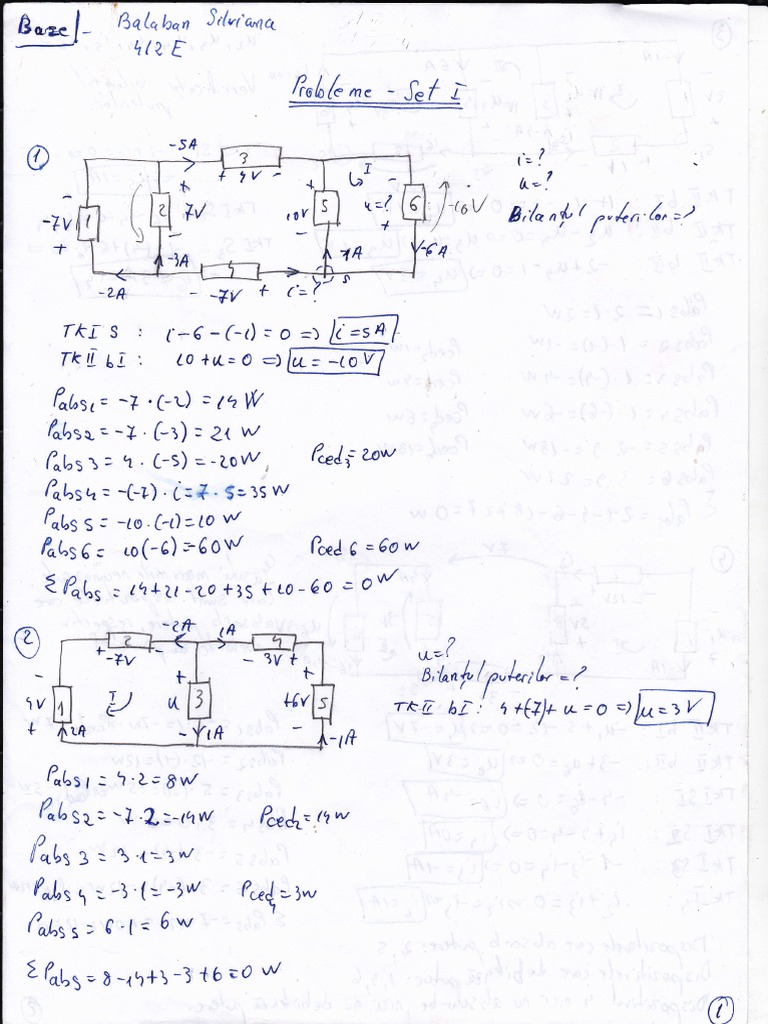 Baze! - Balaban Silviana
412E
Probleme - Set I
1
-5A
3
+ 4V -
I
i=?
u=?
Bilanțul puterilor=?
-
-7V
1
+
+
2
7V
-
+
10V
5
-
-
u=?
6
+
-10V
-3A
-1A
-6A
-2A
4
- -7V +
i=?
S
TKI S : i-6-(-1)=0 => i=5A
TKII bI : 10+u=0 => u=-10V
Pabs1 = -7·(-2) = 14 W
Pabs2 = -7·(-3) = 21 W
Pabs3 = 4·(-5) = -20W Pced3 = 20W
Pabs4 = -(-7)·i = 7·5 = 35W
Pabs5 = -10·(-1) = 10 W
Pabs6 = 10(-6) = -60W Pced6 = 60W
ΣPabs = 14+21-20+35+10-60 = 0W
2
-2A
1A
2
+ -7V -
4
- 3V +
-
4V
1
+
I
+
u
3
-
+
+6V
5
-
2A
1A
-1A
u=?
Bilanțul puterilor=?
TKII bI: 4+(-7)+u=0 => u=3V
Pabs1 = 4·2 = 8W
Pabs2 = -7·2 = -14W Pced2 = 14W
Pabs3 = 3·1 = 3W
Pabs4 = -3·1 = -3W Pced4 = 3W
Pabs5 = 6·1 = 6W
ΣPabs = 8-14+3-3+6 = 0 W
1